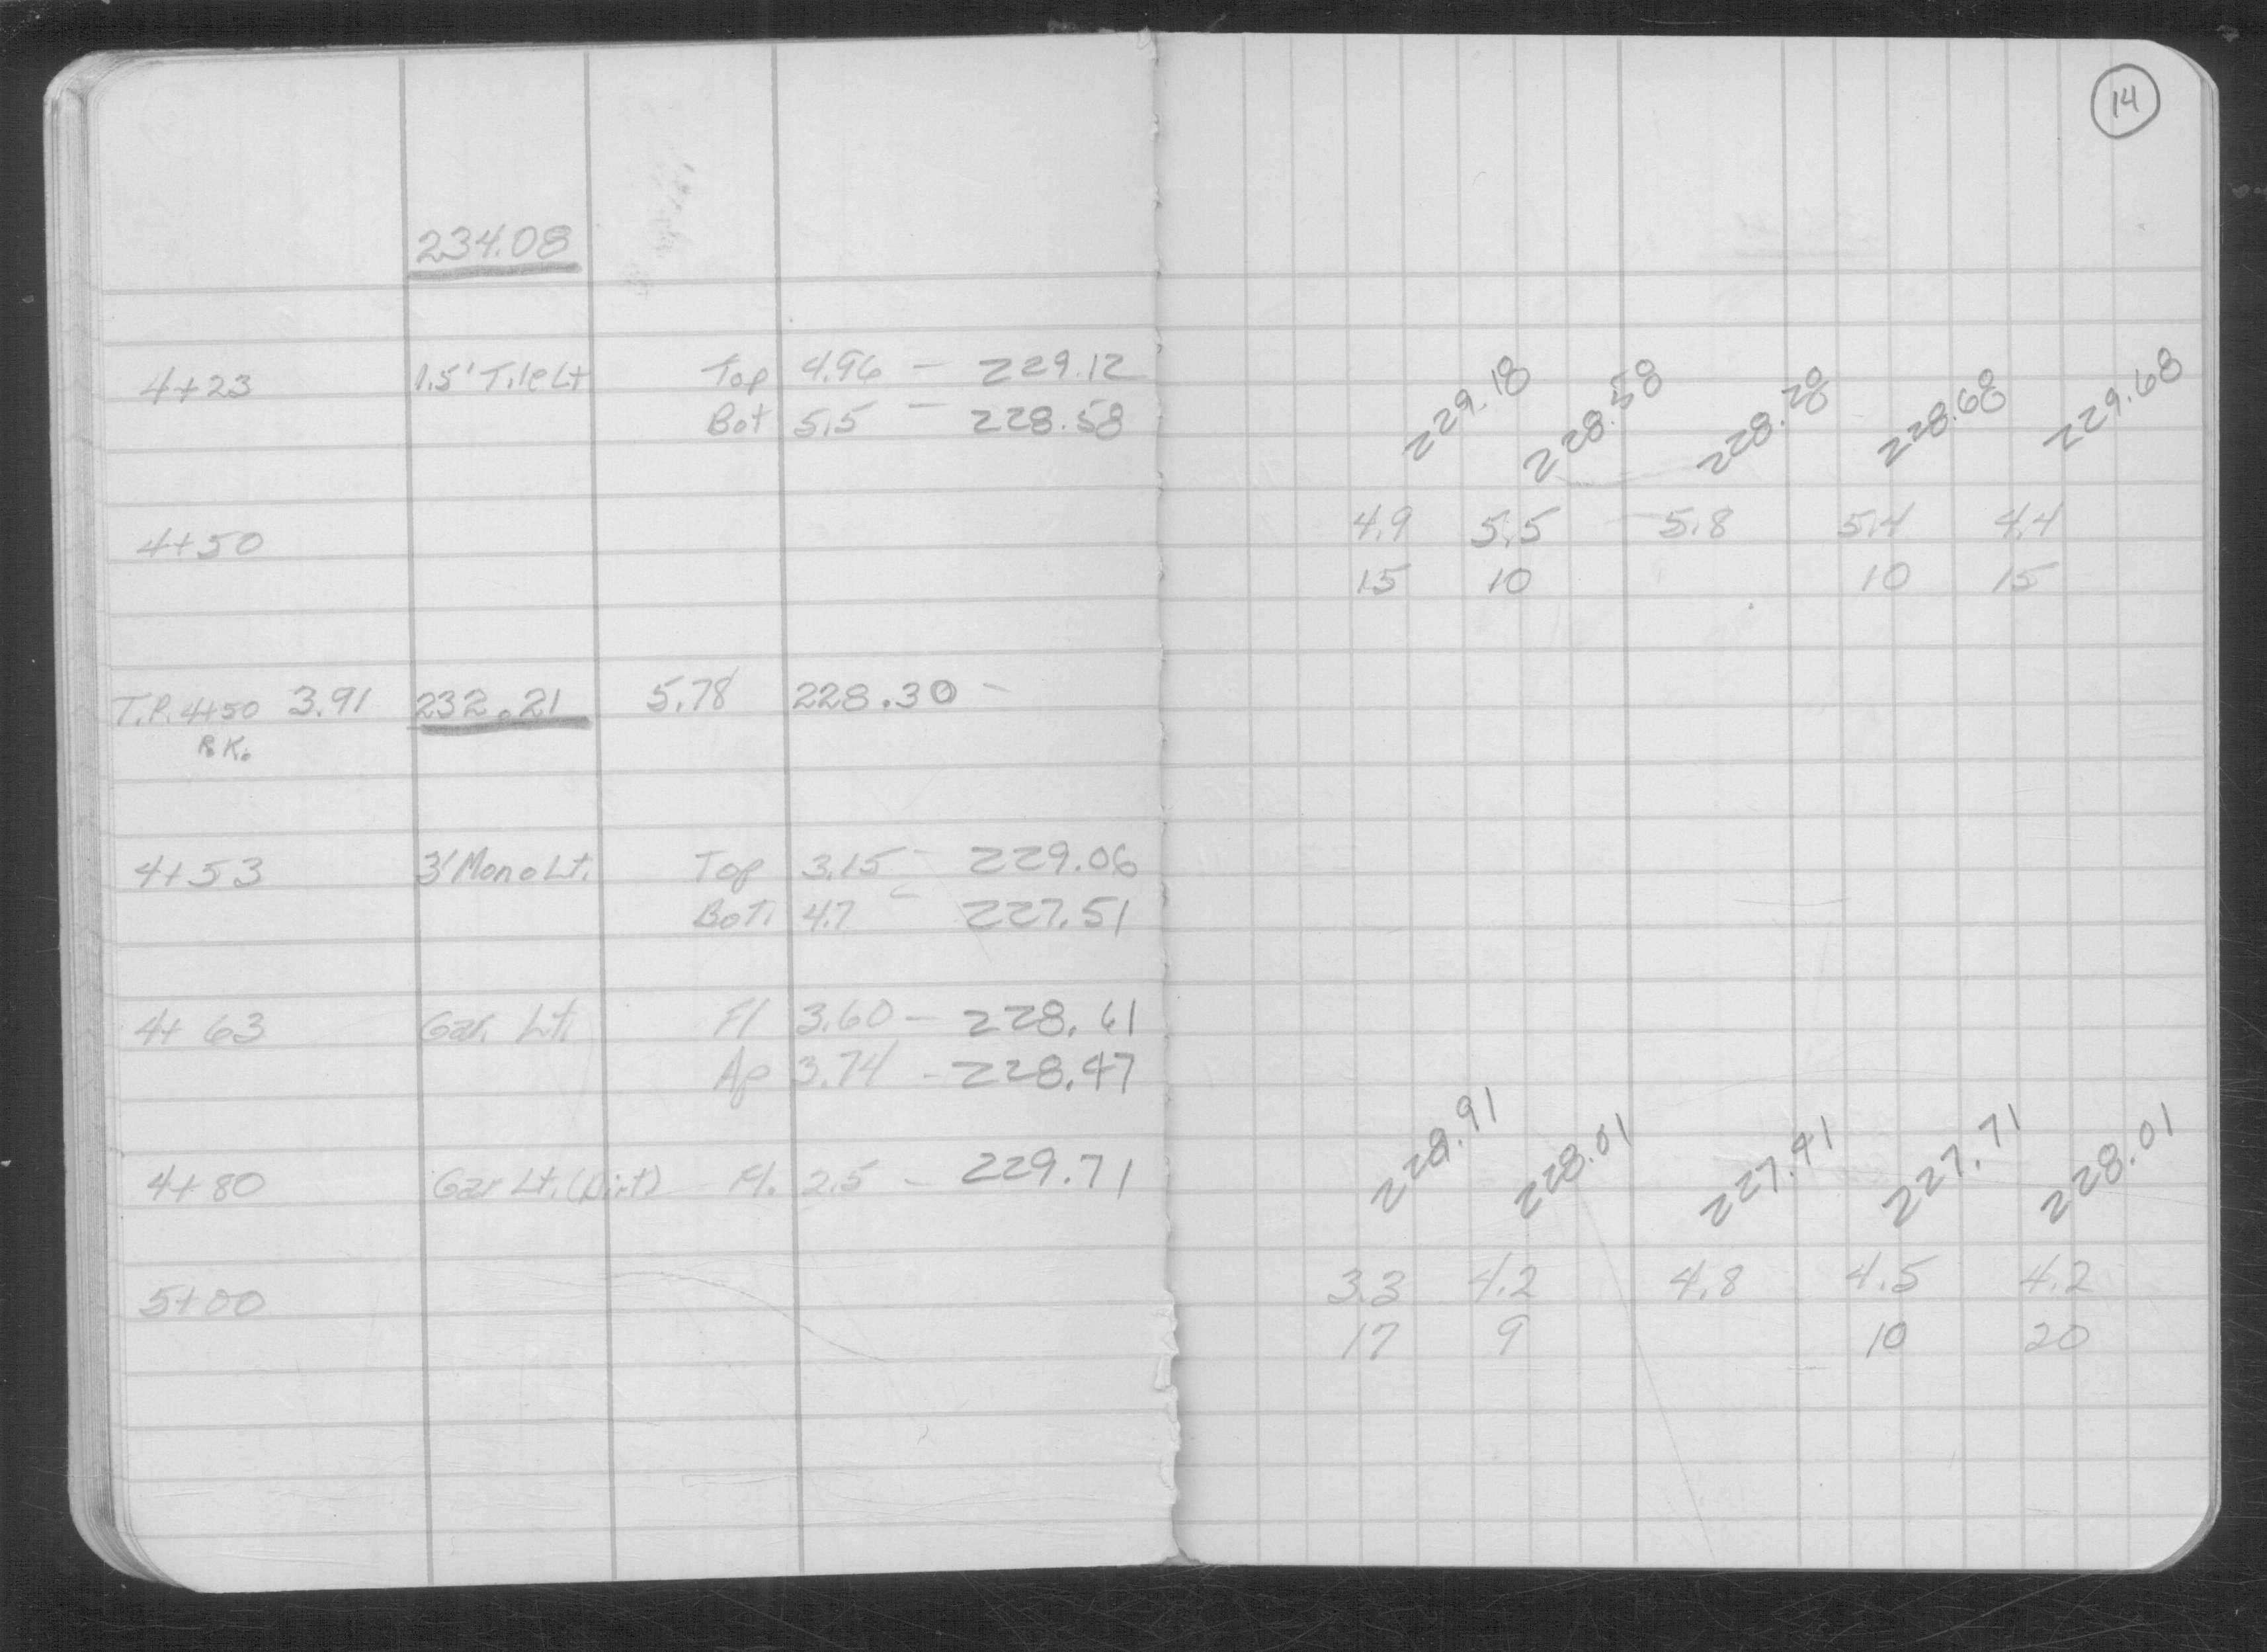 234.08
4+23 1.5' Tile Lt Top 4.96 — 229.12
Bot 5.5 — 228.58
4+50
T.P. 4+50 3.91 232.21 5.78 228.30 -
P.K.
4+53 3' Mono Lt. Top 3.15 - 229.06
Bott 4.7 - 227.51
4+63 Gar. Lt. Fl 3.60 - 228.61
Ap 3.74 - 228.47
4+80 Gar Lt. (Dirt) Fl. 2.5 - 229.71
5+00
14
229.18 228.58 228.28 228.68 229.68
4.9 5.5 5.8 5.4 4.4
15 10 10 15
228.91 228.01 227.41 227.71 228.01
3.3 4.2 4.8 4.5 4.2
17 9 10 20